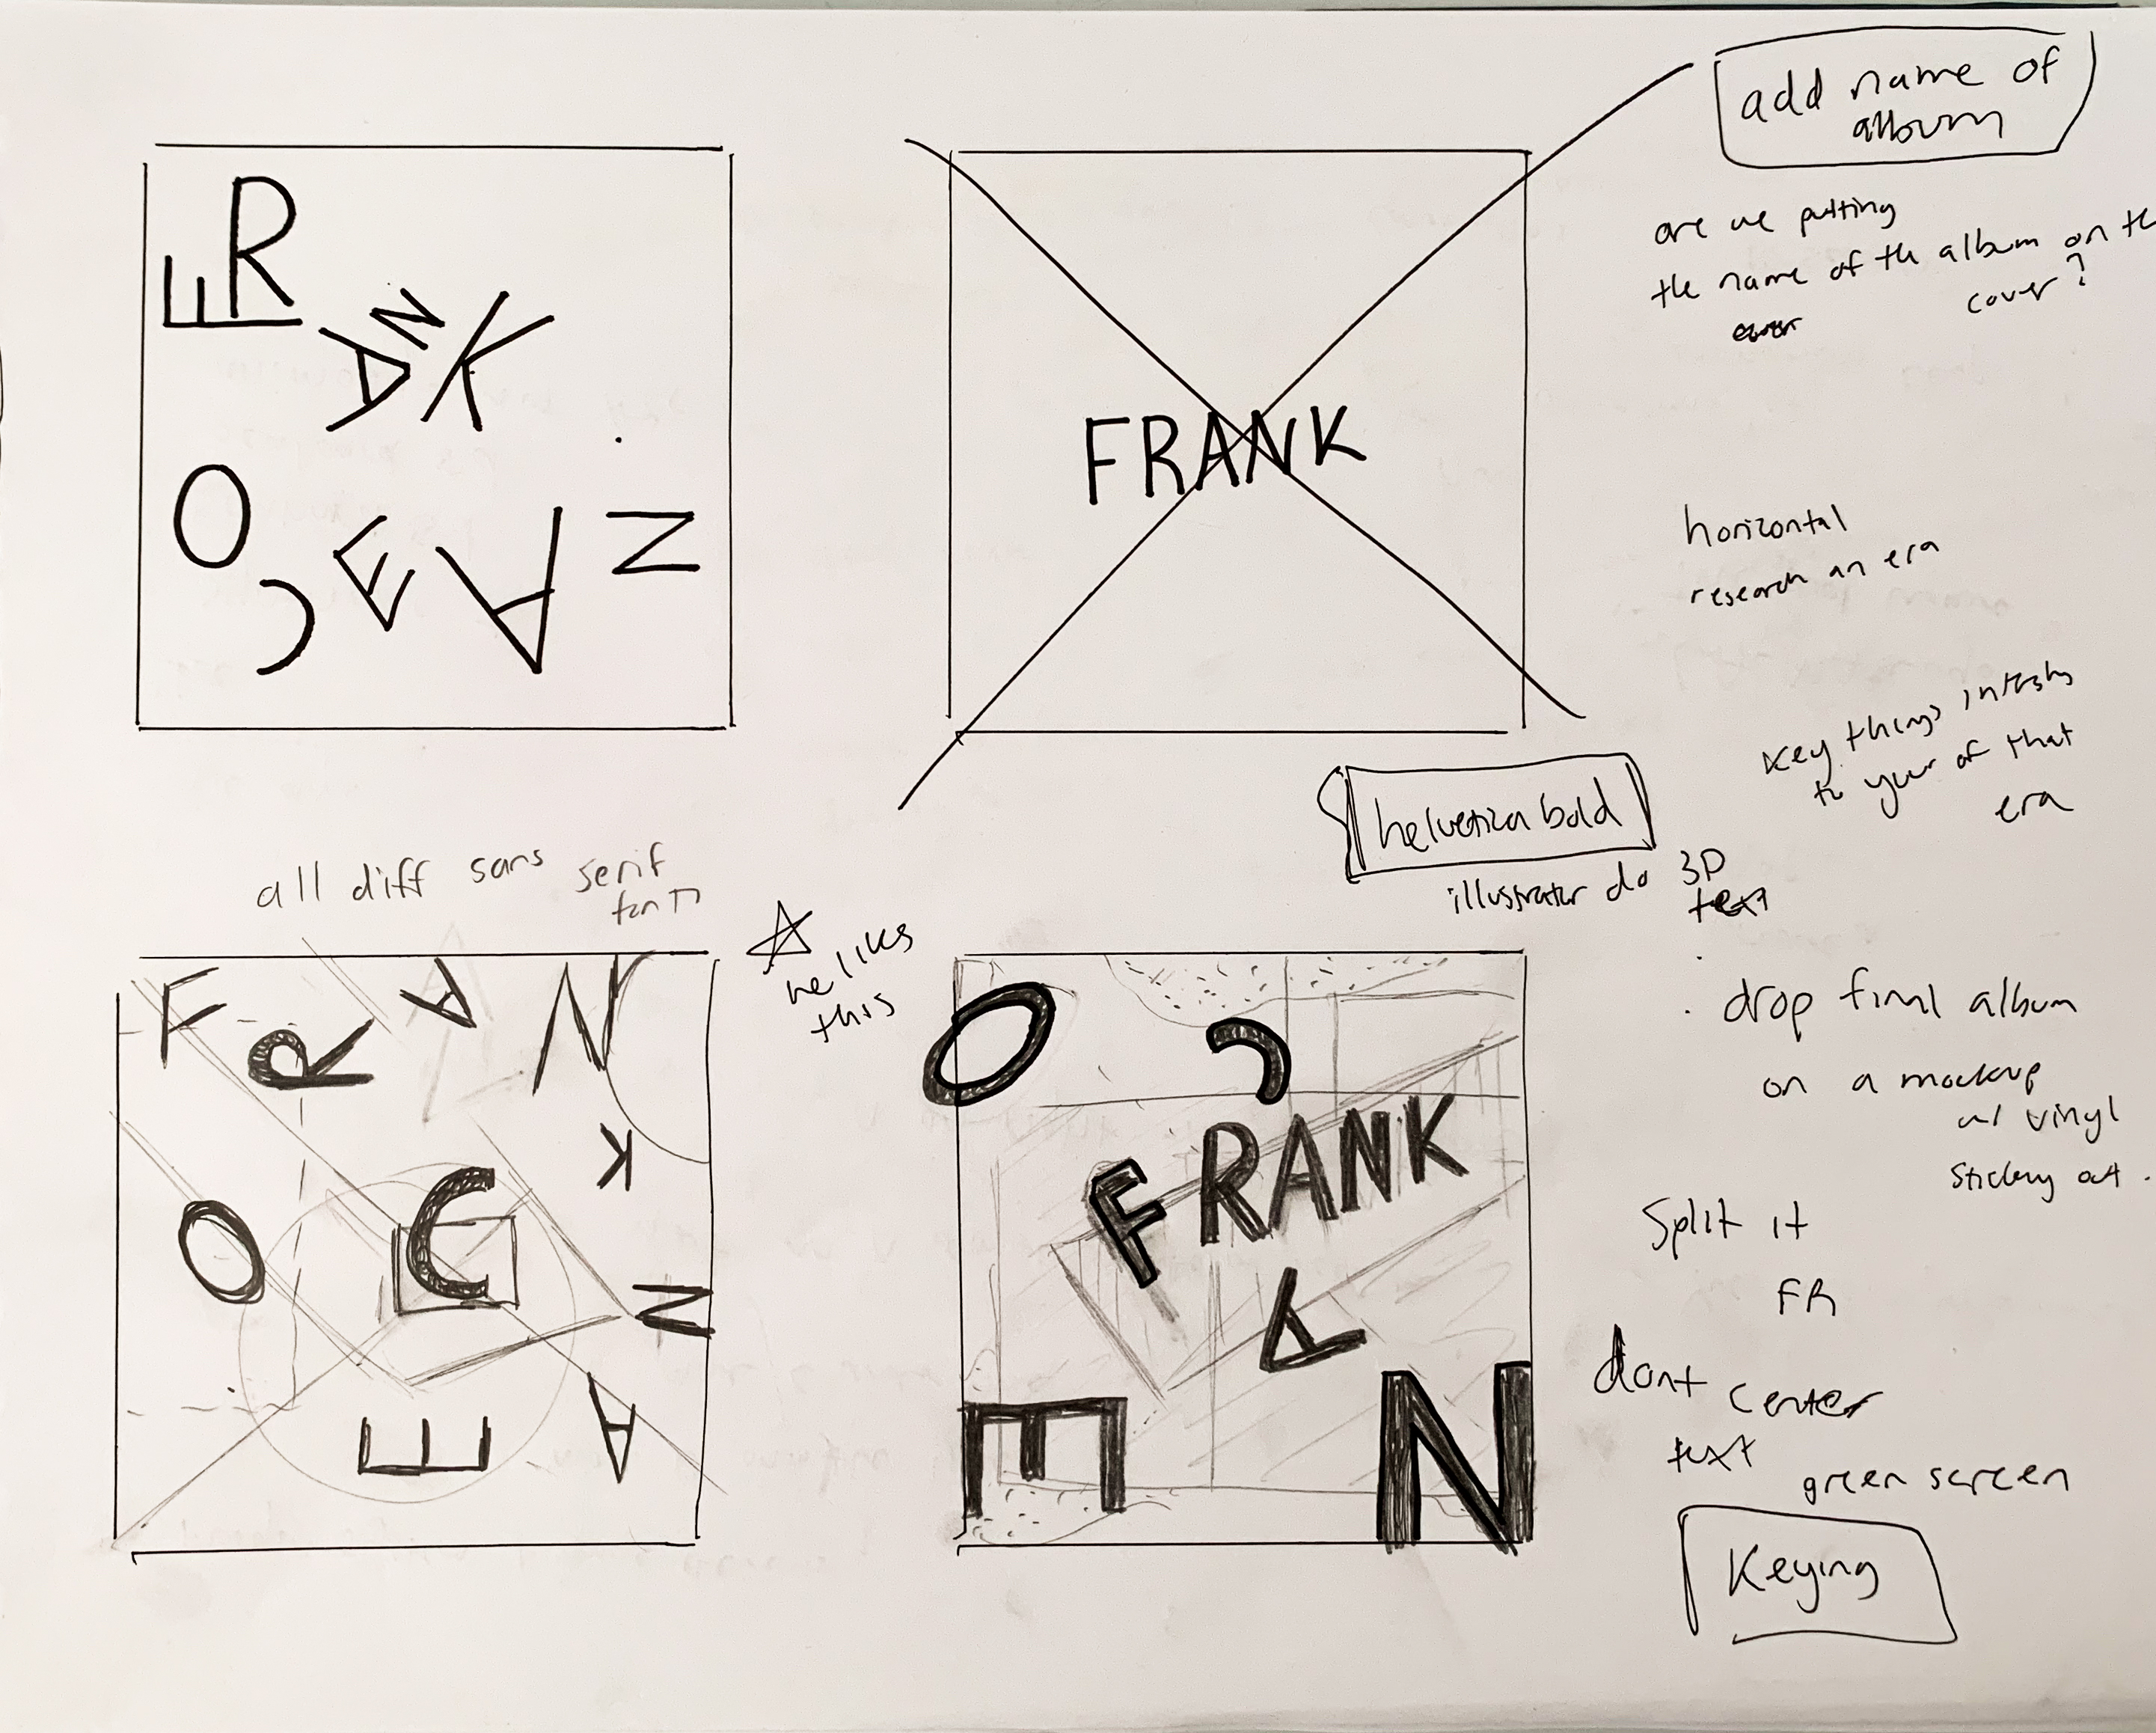 FR
ANK
OCEAN
FRANK
add name of
album
are we putting
the name of the album on th
cover?
horizontal
research an era
key things
to your of that
era
helvetica bold
illustrator do 3D
text
all diff sans serif
he likes
this
FRANK
OCEAN
O C
FRANK
E A N
drop final album
on a mockup
w/ vinyl
sticking out.
Split it
FR
dont center
text
green screen
Keying